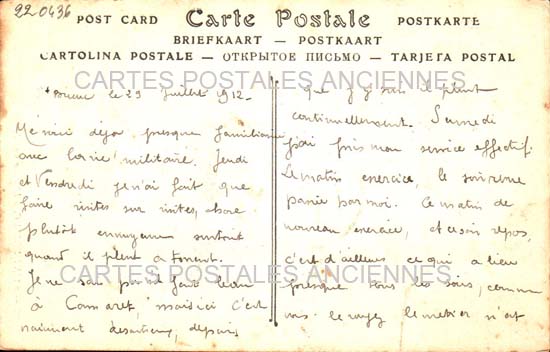 22-0436
POST CARD Carte Postale POSTKARTE
BRIEFKAART — POSTKAART
CARTOLINA POSTALE — ОТКРЫТОЕ ПИСЬМО — TARJETA POSTAL
CARTES POSTALES ANCIENNES
le 29 Juillet 1912-
Me voici déjà presque familiarisé
avec la vie militaire. Jeudi
et Vendredi je n'ai fait que
faire visites sur visites, chose
plutôt ennuyeuse surtout
quand il pleut à torrent.
Je ne sais pas s'il fait beau
à Camaret, mais ici c'est
vraiment désastreux, depuis
que j'y suis il pleut
continuellement. Samedi
j'ai pris mon service effectif.
Le matin exercice, le soir revue
passée par moi. Ce matin de
nouveau exercice, et ce soir repos,
c'est d'ailleurs ce qui a lieu
presque tous les soirs, comme
vous le voyez le métier n'est
CARTES POSTALES ANCIENNES